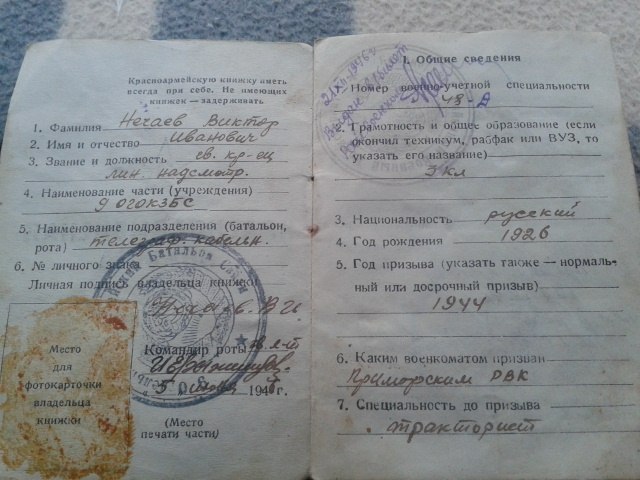 Красноармейскую книжку иметь
всегда при себе. Не имеющих
книжек — задерживать
1. Фамилия Нечаев Виктор
2. Имя и отчество Иванович
3. Звание и должность гв. кр-ец
лин. надсмотр.
4. Наименование части (учреждения)
9 ОГОКЗБС
5. Наименование подразделения (батальон,
рота) телеграф. кабельн.
6. № личного знака
Личная подпись владельца книжки
Командир роты
5 194 г.
Место
для
фотокарточки
владельца
книжки
(Место
печати части)
Батальон
I. Общие сведения
Номер военно-учетной специальности
48
2. Грамотность и общее образование (если
окончил техникум, рабфак или ВУЗ, то
указать его название)
5 кл
3. Национальность русский
4. Год рождения 1926
5. Год призыва (указать также — нормаль-
ный или досрочный призыв)
1944
6. Каким военкоматом призван
Приморским РВК
7. Специальность до призыва
тракторист